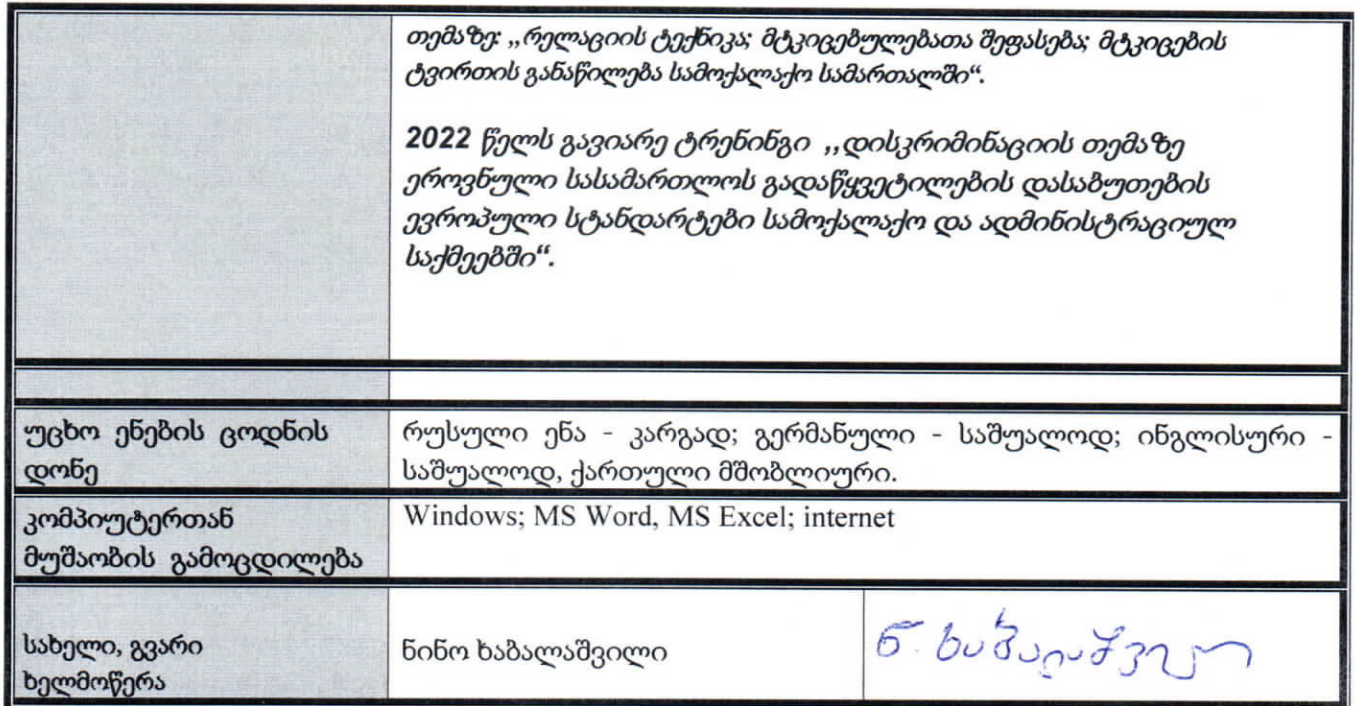 თემაზე: ,,რელაციის ტექნიკა; მტკიცებულებათა შეფასება; მტკიცების
ტვირთის განაწილება სამოქალაქო სამართალში“.
2022 წელს გავიარე ტრენინგი ,,დისკრიმინაციის თემაზე
ეროვნული სასამართლოს გადაწყვეტილების დასაბუთების
ევროპული სტანდარტები სამოქალაქო და ადმინისტრაციულ
საქმეებში“.
უცხო ენების ცოდნის
დონე
რუსული ენა - კარგად; გერმანული - საშუალოდ; ინგლისური -
საშუალოდ, ქართული მშობლიური.
კომპიუტერთან
მუშაობის გამოცდილება
Windows; MS Word, MS Excel; internet
სახელი, გვარი
ხელმოწერა
ნინო ხაბალაშვილი
ნ. ხაბალაშვილი